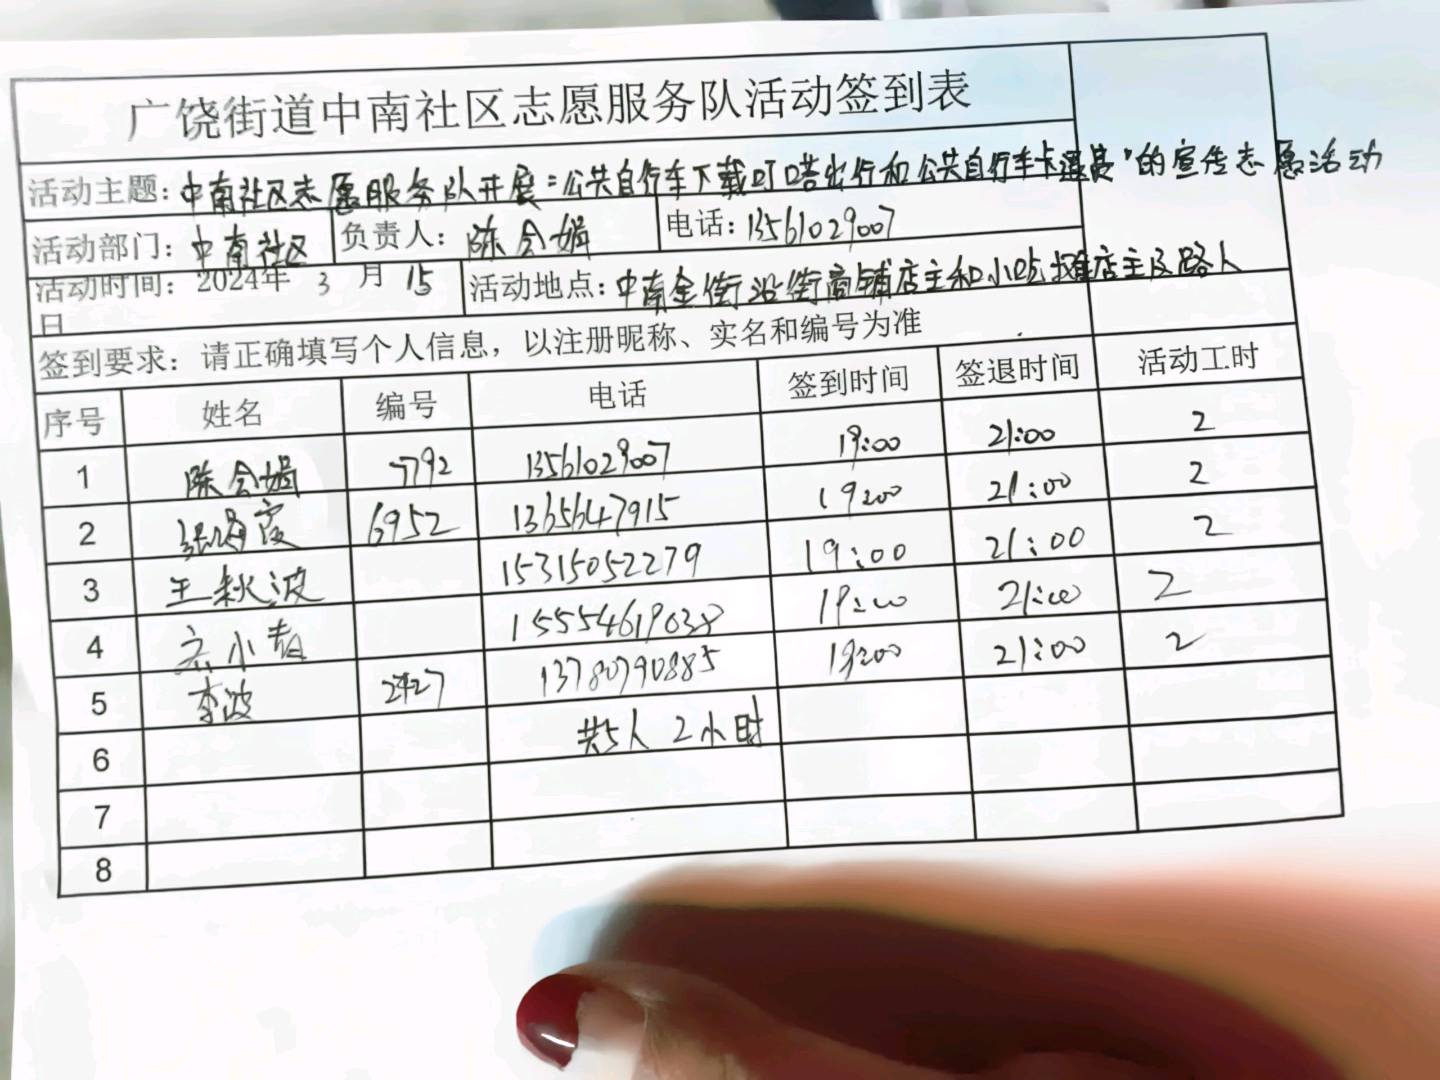 广饶街道中南社区志愿服务队活动签到表
活动主题：中南社区志愿服务队开展“公共自行车下载叮嗒出行和公共自行车卡退费”的宣传志愿活动
活动部门：中南社区 负责人：陈会娟 电话：13561029007
活动时间：2024年 3 月 15 活动地点：中南金街沿街商铺店主和小吃摊店主及路人
日
签到要求：请正确填写个人信息，以注册昵称、实名和编号为准
序号 姓名 编号 电话 签到时间 签退时间 活动工时
1 陈会娟 7792 13561029007 19:00 21:00 2
2 张海霞 6952 1365647915 19:00 21:00 2
3 王秋波 15315052279 19:00 21:00 2
4 小青 15554619038 19:00 21:00 2
5 李波 2427 13780790885 19:00 21:00 2
6 共5人 2小时
7
8